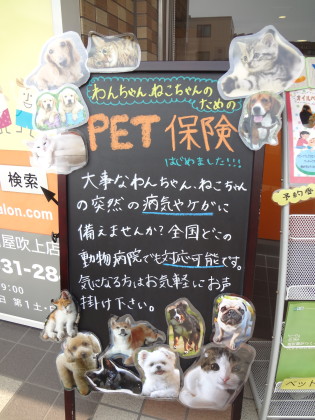 わんちゃん、ねこちゃんの
ための
PET保険
はじめました!!!
大事なわんちゃん、ねこちゃん
の突然の病気やケガに
備えませんか?全国どこの
動物病院でも対応可能です。
気になる方はお気軽にお声
掛け下さい。
検索
alon.com
屋吹上店
31-28
9:00
日 第1土
予約会
ペット